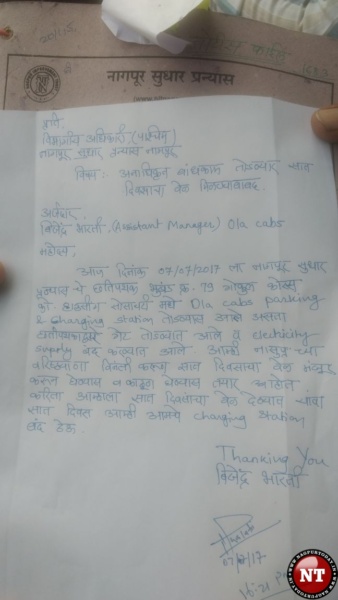 नागपूर सुधार प्रन्यास
प्रति
विभागीय अधिकारी (पश्चिम)
नागपूर सुधार प्रन्यास नागपूर
विषय: अनाधिकृत बांधकाम तोडण्यास सात
दिवसाचा वेळ मिळण्याबाबत.
अर्जदार,
बिजेंद्र भारती, (Assistant Manager) Ola cabs
महोदय,
आज दिनांक 07/07/2017 ला नागपूर सुधार
प्रन्यास चे 79 गोकुळ
सोसायटी मध्ये Ola cabs parking
& Charging Station तोडण्यास आले असता
गेट तोडण्यात आले व electricity
supply बंद करण्यात आले. आम्ही नासुप्र च्या
विनंती करतो सात दिवसाचा वेळ मंजूर
करून घेण्यास व काढून घेण्यास तयार आहोत
करिता आम्हाला सात दिवसाचा वेळ देण्यात यावा
सात दिवस आम्ही आमचे charging Station
बंद ठेऊ
Thanking You
बिजेंद्र भारती
07/07/17
NT